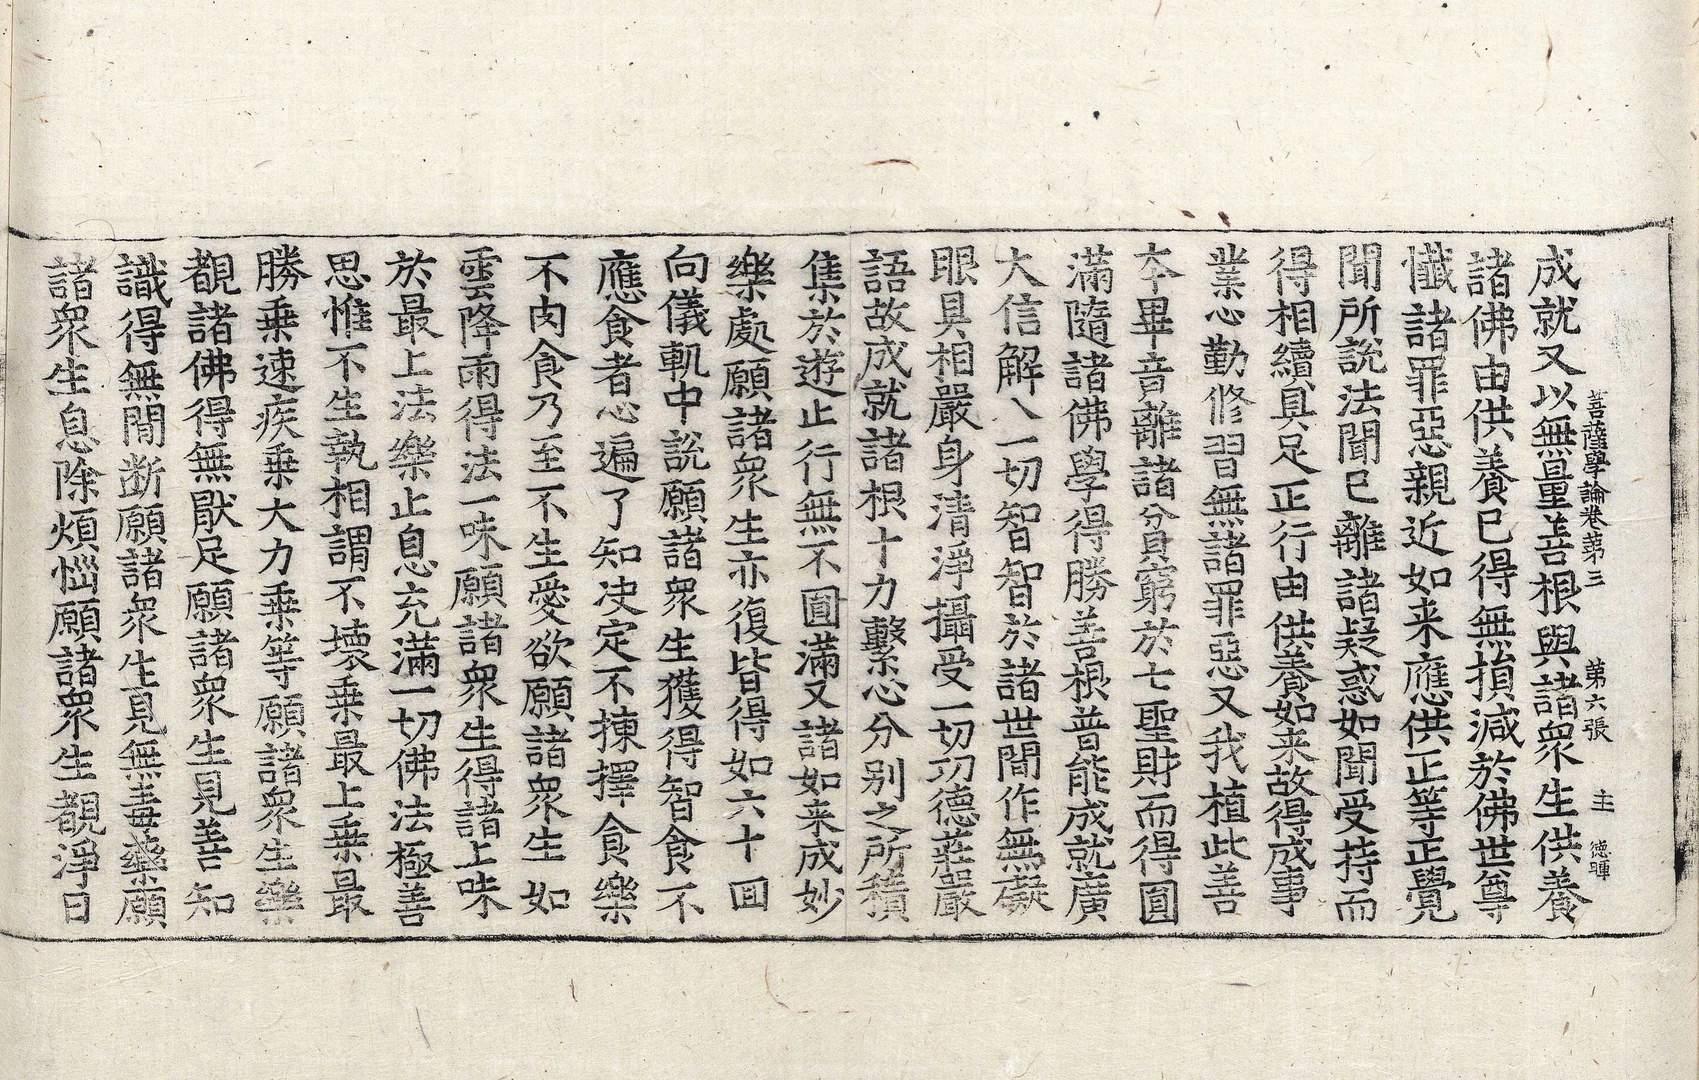 菩薩學論卷第三 第六張 主 德暉
成就又以無量善根與諸衆生供養
諸佛由供養已得無損減於佛世尊
懺諸罪惡親近如来應供正等正覺
聞所說法聞已離諸疑惑如聞受持而
得相續具足正行由供養如来故得成事
業心勤修習無諸罪惡又我植此善
夲畢音離諸貧窮於七聖財而得圓
滿隨諸佛學得勝善根普能成就廣
大信解入一切智智於諸世間作無礙
眼具相嚴身清淨攝受一切㓛德莊嚴
語故成就諸根十力繫心分别之所積
集於遊止行無不圓滿又諸如来成妙
樂處願諸衆生亦復皆得如六十回
向儀軌中說願諸衆生獲得智食不
應食者心遍了知决定不揀擇食樂
不肉食乃至不生愛欲願諸衆生如
雲降雨得法一味願諸衆生得諸上味
於最上法樂止息充滿一切佛法極善
思惟不生執相謂不壞乗最上乗最
勝乗速疾乗大力乗等願諸衆生樂
覩諸佛得無猒足願諸衆生見善知
識得無間断願諸衆生見無毒藥願
諸衆生息除煩惱願諸衆生覩淨日